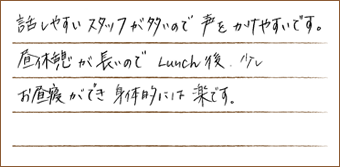 話しやすいスタッフが多いので声をかけやすいです。
昼休憩が長いのでLunch後、少し
お昼寝ができ身体的には楽です。